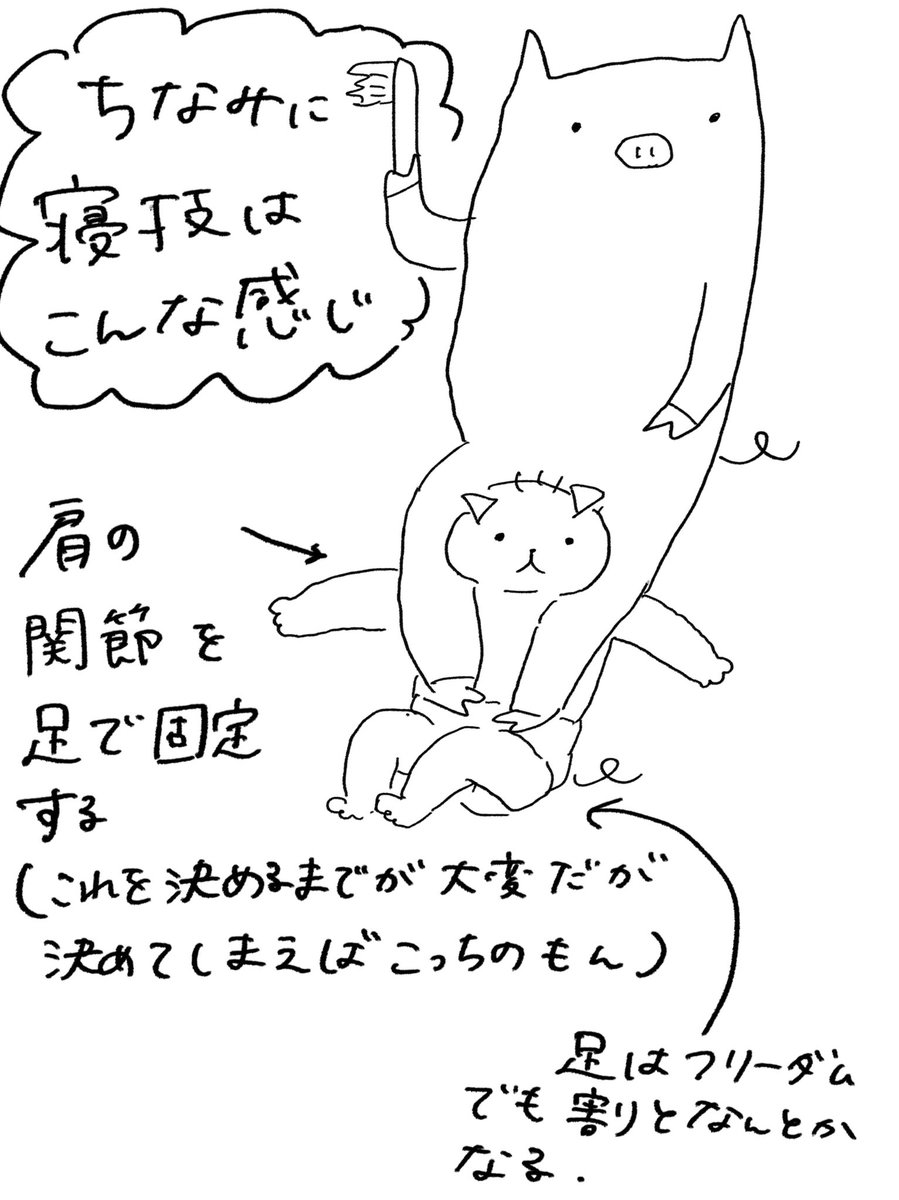 ちなみに
寝技は
こんな感じ
肩の
関節を
足で固定
する
(これを決めるまでが大変だが
決めてしまえばこっちのもん)
足はフリーダム
でも割りとなんとか
なる.